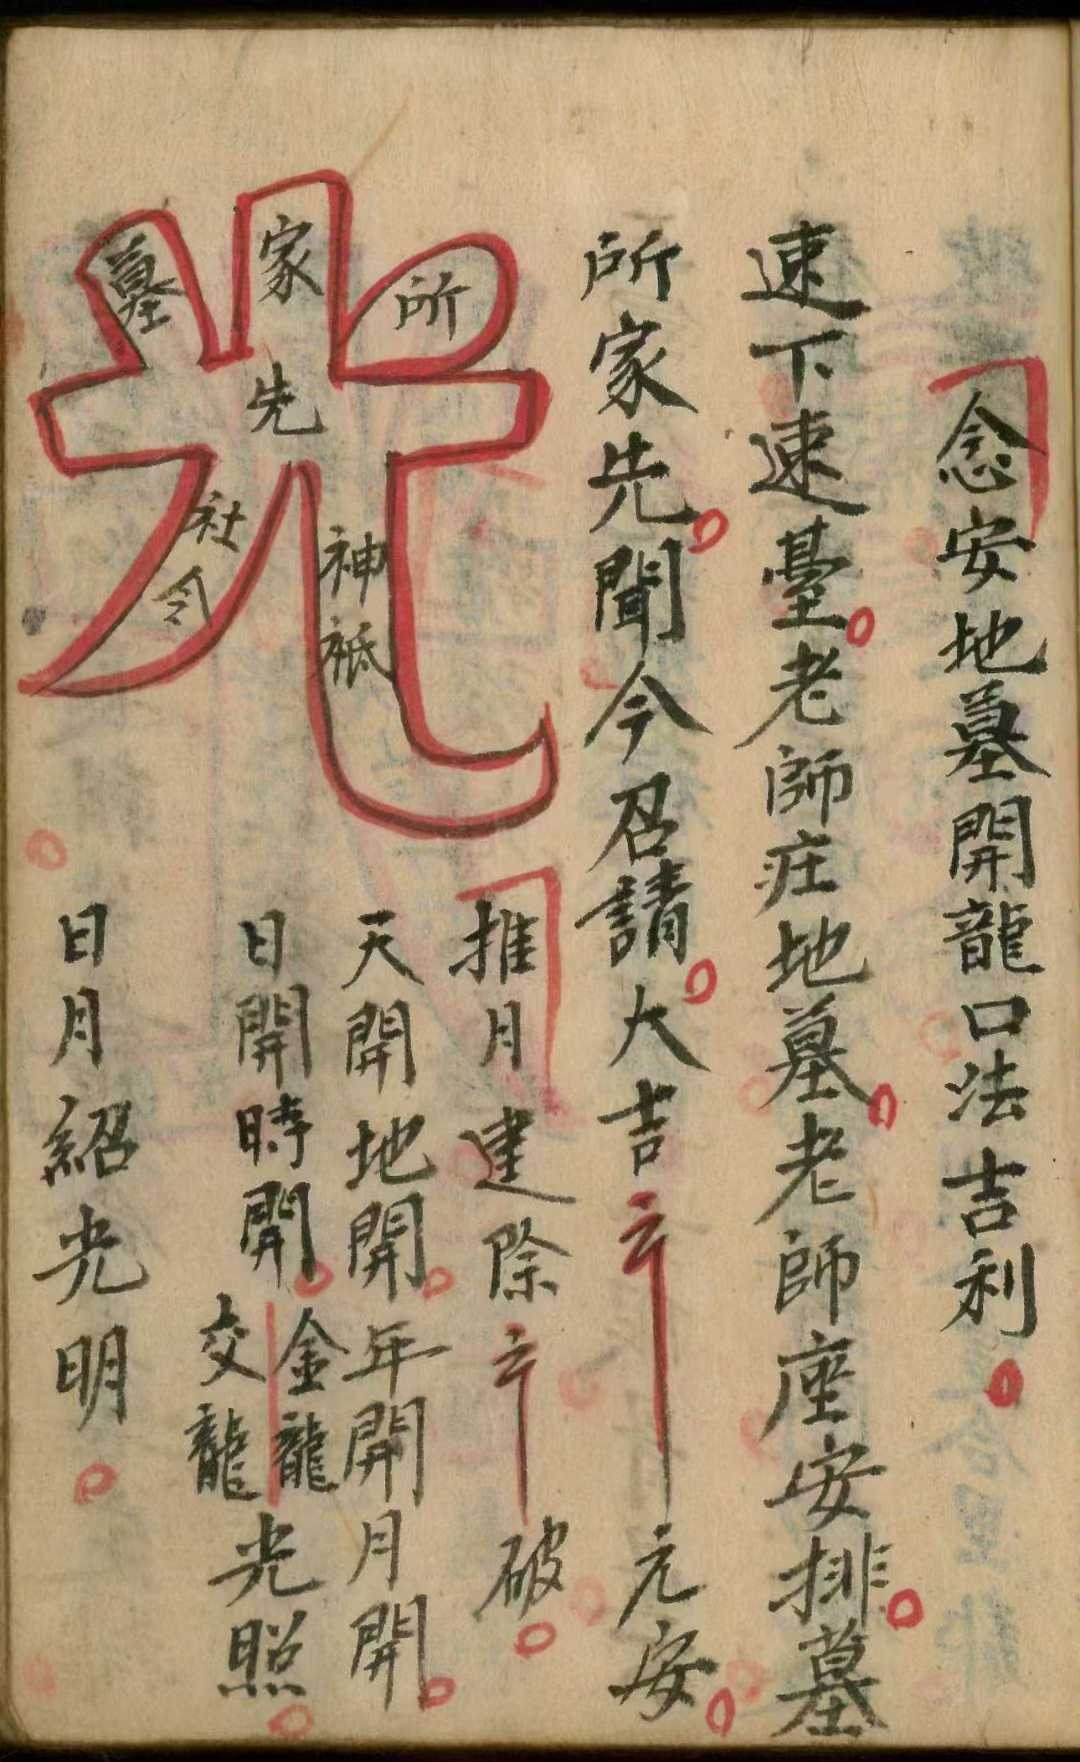 念安地墓開龍口法吉利
速下速臺老師庄地墓老師座安排墓
所家先聞今召請大吉 元安
所
家先
墓
神祗
社令
推月建除 破
天開地開年開月開
日開時開金龍交龍光照
日月紹光明